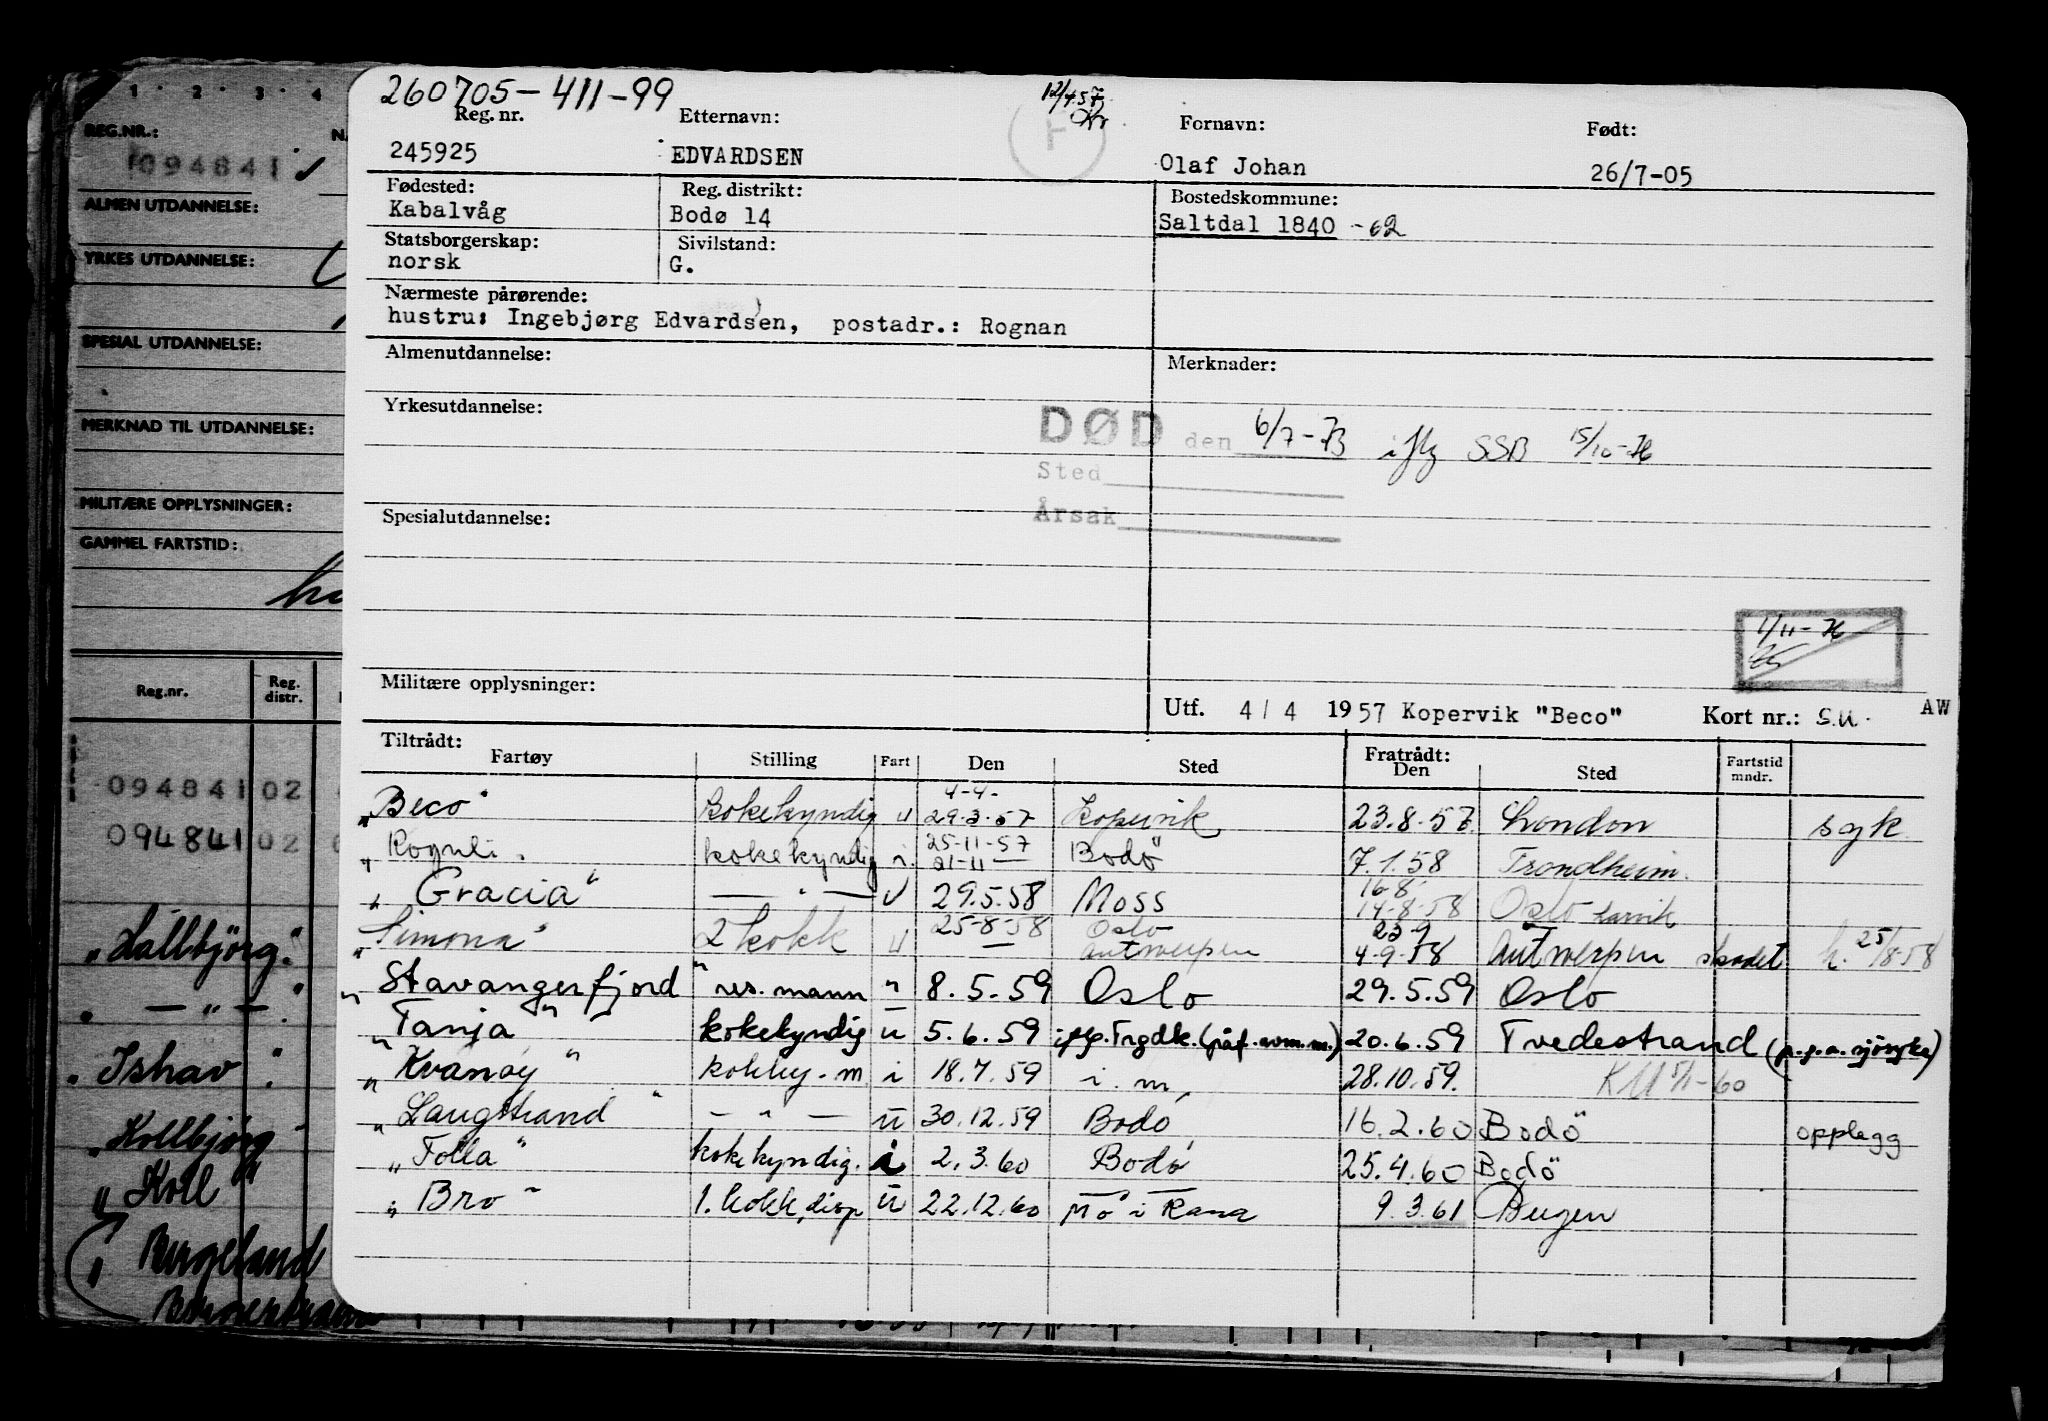 260705-411-99
12/4.57
Reg. nr. Etternavn: Fornavn: Født:
245925 EDVARDSEN Olaf Johan 26/7-05
Fødested: Reg. distrikt: Bostedskommune:
Kabalvåg Bodø 14 Saltdal 1840 -62
Statsborgerskap: Sivilstand:
norsk G.
Nærmeste pårørende:
hustru: Ingebjørg Edvardsen, postadr.: Rognan
Almenutdannelse: Merknader:
Yrkesutdannelse:
DØD den 6/7-73 iflg SSB 15/10-76
Sted
Årsak
Spesialutdannelse:
1/11-76
Militære opplysninger:
Utf. 4/4 1957 Kopervik "Beco" Kort nr.: S.U. AW
Tiltrådt: Fratrådt:
Fartøy Stilling Fart Den Sted Den Sted Fartstid mndr.
4-4-
"Beco" kokekyndig u 29-3-57 Kopervik 23.8.57 London syk
25-11-57
" Rognli. kokekyndig i. 21-11 — Bodö 7.1.58 Trondheim.
16-8
" Gracia" — " — u 29.5.58 Moss 14-8-58 Oslo Larvik
25-8-58 Oslo 23-9
"Simona" 2 kokk u — Antwerpen 4-9-58 Antwerpen skadet h. 25/8-58
" Stavangerfjord " res. mann u 8.5.59 Oslo 29.5.59 Oslo
" Tanja " kokekyndig u 5.6.59 iflg. Trgdk. (påf. avm.m.) 20.6.59 Tvedestrand (p.g.a. sjösyke)
" Kvanöy " kokky.m i 18.7.59 i. m. 28.10.59. KU 5/1-60
" Langstrand " — " — u 30.12.59 Bodö 16.2.60 Bodö opplegg
" Folla " kokekyndig. i 2.3.60 Bodö 25.4.60 Bodö
" Bro " 1. kokk, disp u 22.12.60 Mo i Rana 9.3.61 Bergen
1 2 3 4
REG.NR.:
094841
ALMEN UTDANNELSE:
YRKES UTDANNELSE:
SPESIAL UTDANNELSE:
MERKNAD TIL UTDANNELSE:
MILITÆRE OPPLYSNINGER:
GAMMEL FARTSTID:
Reg.nr. Reg. distr.
094841 02
094841 02
"Kollbjörg."
. — " — ."
. Ishav ."
"Kollbjörg"
"Koll"
" Bergeland